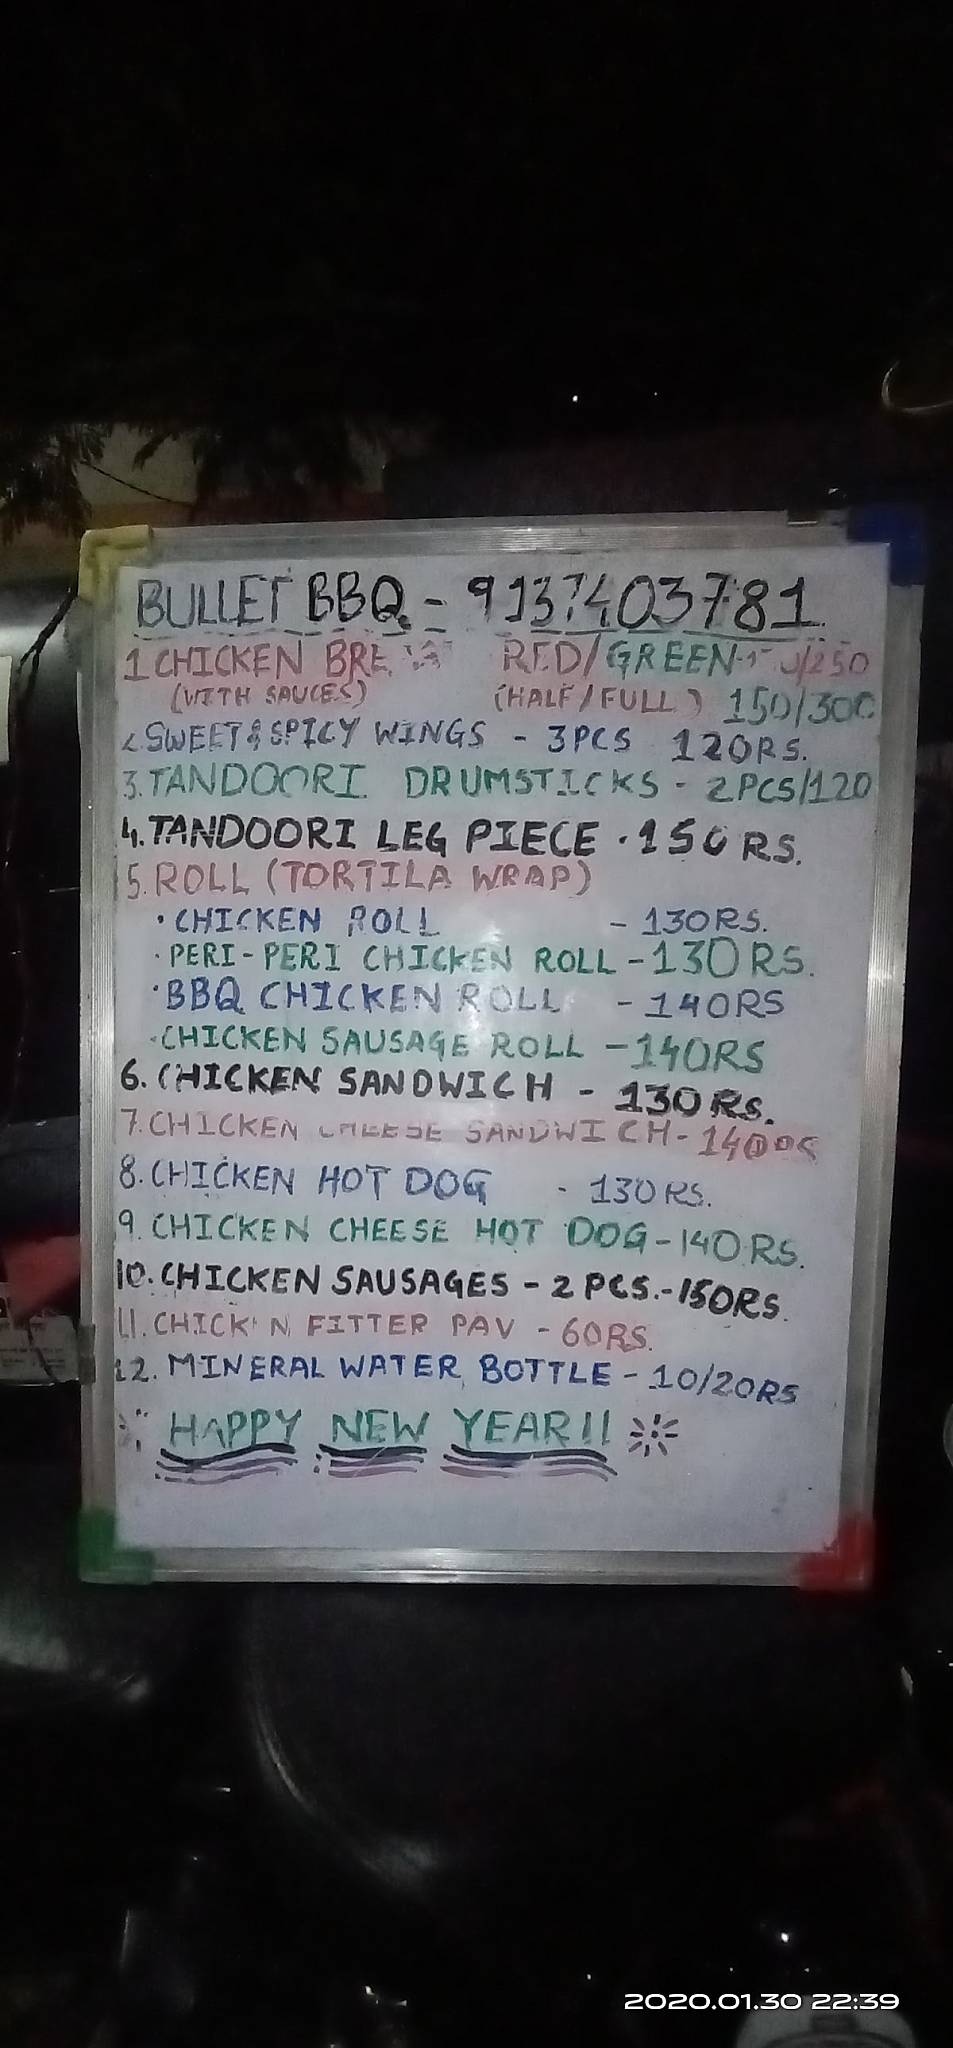 BULLET BBQ. - 9137403781
1 CHICKEN RED/GREEN /250
(WITH SAUCES) (HALF/FULL) 150/300
2. SWEET & SPICY WINGS - 3PCS 120RS.
3. TANDOORI DRUMSTICKS - 2PCS/120
4. TANDOORI LEG PIECE . 150 RS.
5. ROLL (TORTILA WRAP)
• CHICKEN ROLL - 130RS.
• PERI-PERI CHICKEN ROLL - 130 RS.
• BBQ CHICKEN ROLL - 140RS
• CHICKEN SAUSAGE ROLL - 140RS
6. CHICKEN SANDWICH - 130 Rs.
7. CHICKEN CHEESE SANDWICH - 140RS
8. CHICKEN HOT DOG - 130 RS.
9. CHICKEN CHEESE HOT DOG - 140 RS.
10. CHICKEN SAUSAGES - 2 PCS. - 150RS.
11. CHICKEN FITTER PAV - 60RS.
12. MINERAL WATER BOTTLE - 10/20RS
HAPPY NEW YEAR!!
2020.01.30 22:39